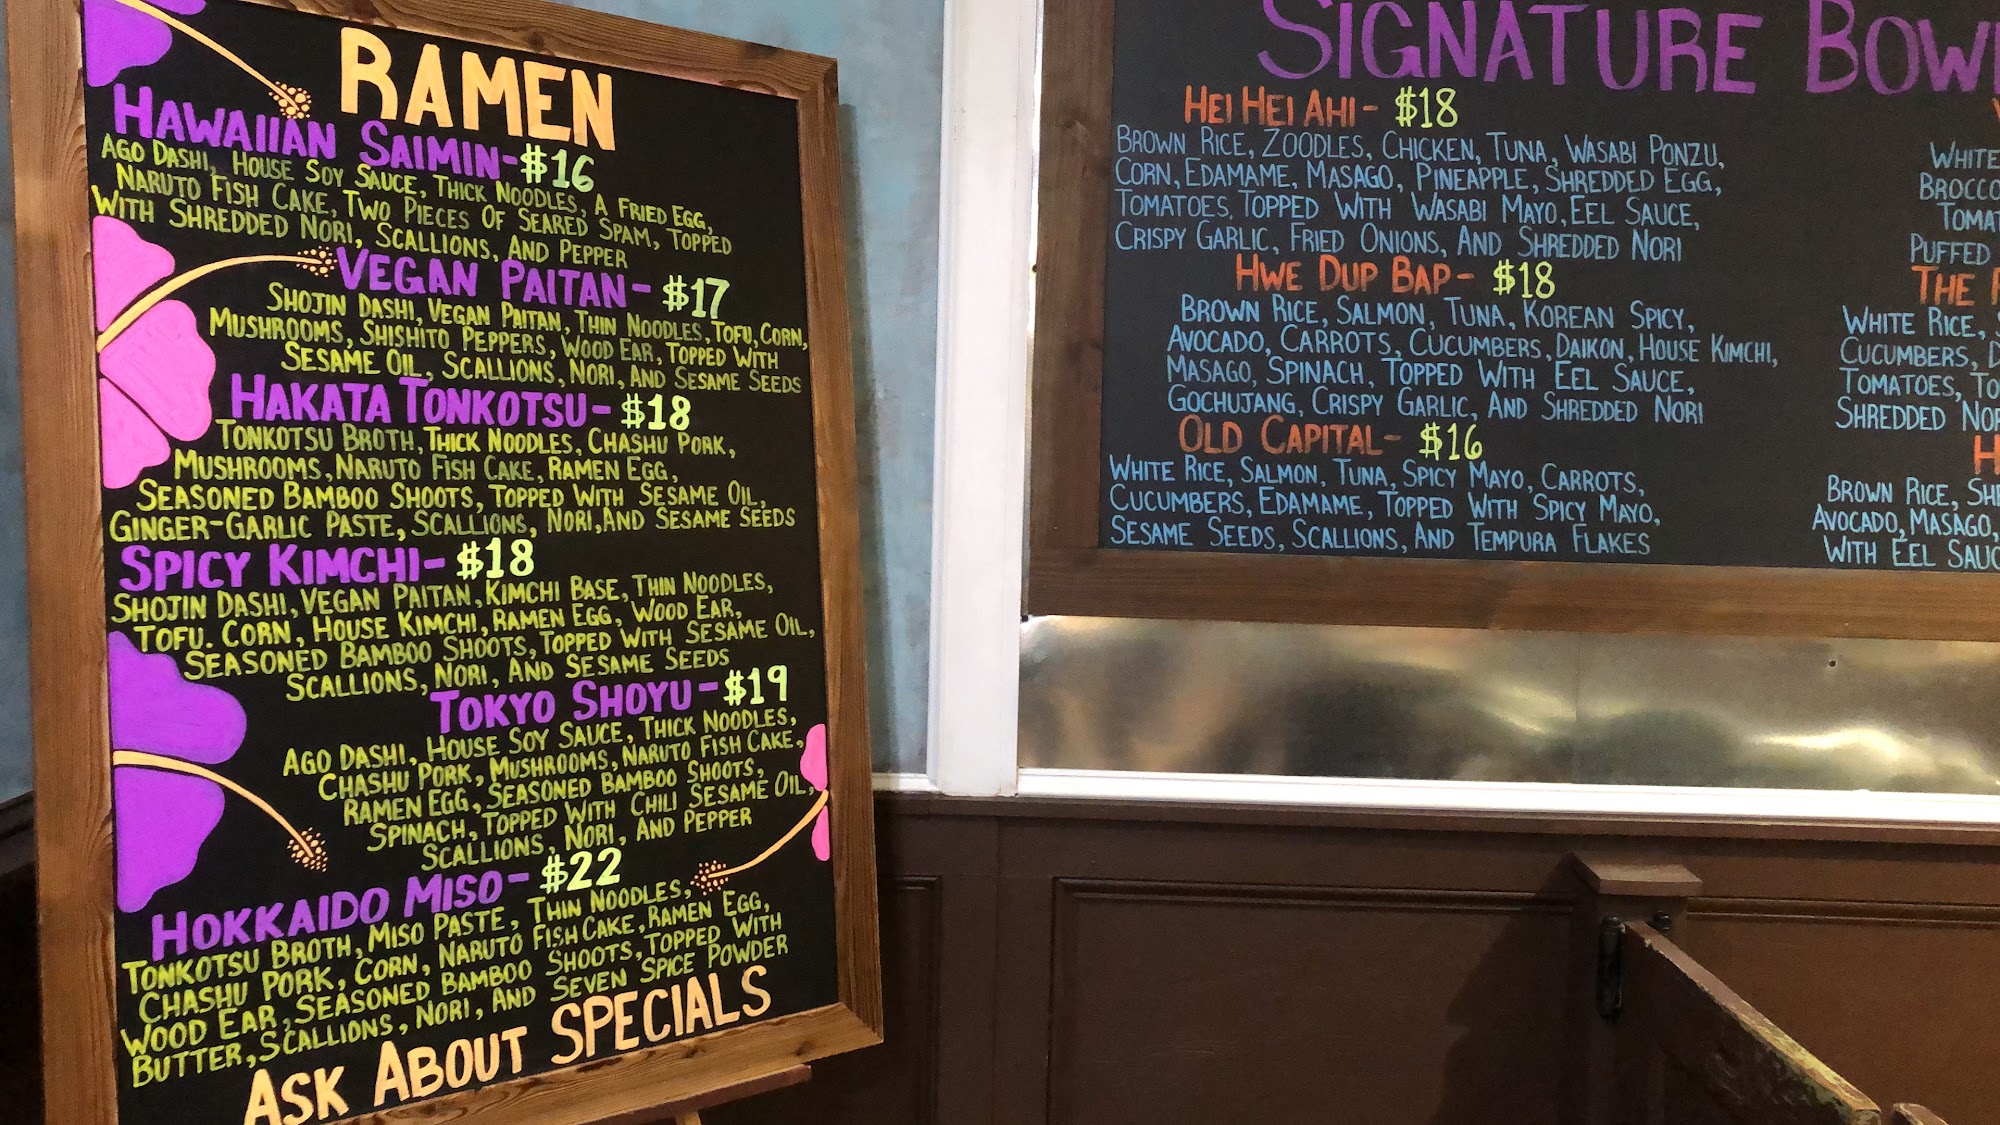 RAMEN
HAWAIIAN SAIMIN-$16
AGO DASHI, HOUSE SOY SAUCE, THICK NOODLES, A FRIED EGG,
NARUTO FISH CAKE, TWO PIECES OF SEARED SPAM, TOPPED
WITH SHREDDED NORI, SCALLIONS, AND PEPPER
VEGAN PAITAN-$17
SHOJIN DASHI, VEGAN PAITAN, THIN NOODLES, TOFU, CORN,
MUSHROOMS, SHISHITO PEPPERS, WOOD EAR, TOPPED WITH
SESAME OIL, SCALLIONS, NORI, AND SESAME SEEDS
HAKATA TONKOTSU-$18
TONKOTSU BROTH, THICK NOODLES, CHASHU PORK,
MUSHROOMS, NARUTO FISH CAKE, RAMEN EGG,
SEASONED BAMBOO SHOOTS, TOPPED WITH SESAME OIL,
GINGER-GARLIC PASTE, SCALLIONS, NORI, AND SESAME SEEDS
SPICY KIMCHI-$18
SHOJIN DASHI, VEGAN PAITAN, KIMCHI BASE, THIN NOODLES,
TOFU. CORN, HOUSE KIMCHI, RAMEN EGG, WOOD EAR,
SEASONED BAMBOO SHOOTS, TOPPED WITH SESAME OIL,
SCALLIONS, NORI, AND SESAME SEEDS
TOKYO SHOYU-$19
AGO DASHI, HOUSE SOY SAUCE, THICK NOODLES,
CHASHU PORK, MUSHROOMS, NARUTO FISH CAKE,
RAMEN EGG, SEASONED BAMBOO SHOOTS,
SPINACH, TOPPED WITH CHILI SESAME OIL,
SCALLIONS, NORI, AND PEPPER
HOKKAIDO MISO-$22
TONKOTSU BROTH, MISO PASTE, THIN NOODLES,
CHASHU PORK, CORN, NARUTO FISH CAKE, RAMEN EGG,
WOOD EAR, SEASONED BAMBOO SHOOTS, TOPPED WITH
BUTTER, SCALLIONS, NORI, AND SEVEN SPICE POWDER
ASK ABOUT SPECIALS
SIGNATURE BOW
HEI HEI AHI-$18
BROWN RICE, ZOODLES, CHICKEN, TUNA, WASABI PONZU,
CORN, EDAMAME, MASAGO, PINEAPPLE, SHREDDED EGG,
TOMATOES, TOPPED WITH WASABI MAYO, EEL SAUCE,
CRISPY GARLIC, FRIED ONIONS, AND SHREDDED NORI
HWE DUP BAP-$18
BROWN RICE, SALMON, TUNA, KOREAN SPICY,
AVOCADO, CARROTS, CUCUMBERS, DAIKON, HOUSE KIMCHI,
MASAGO, SPINACH, TOPPED WITH EEL SAUCE,
GOCHUJANG, CRISPY GARLIC, AND SHREDDED NORI
OLD CAPITAL-$16
WHITE RICE, SALMON, TUNA, SPICY MAYO, CARROTS,
CUCUMBERS, EDAMAME, TOPPED WITH SPICY MAYO,
SESAME SEEDS, SCALLIONS, AND TEMPURA FLAKES
WHITE
BROCCO
TOMAT
PUFFED
THE
WHITE RICE,
CUCUMBERS, D
TOMATOES, TO
SHREDDED NOR
H
BROWN RICE, SH
AVOCADO, MASAGO,
WITH EEL SAUC